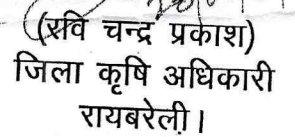 (रवि चन्द्र प्रकाश)
जिला कृषि अधिकारी
रायबरेली।